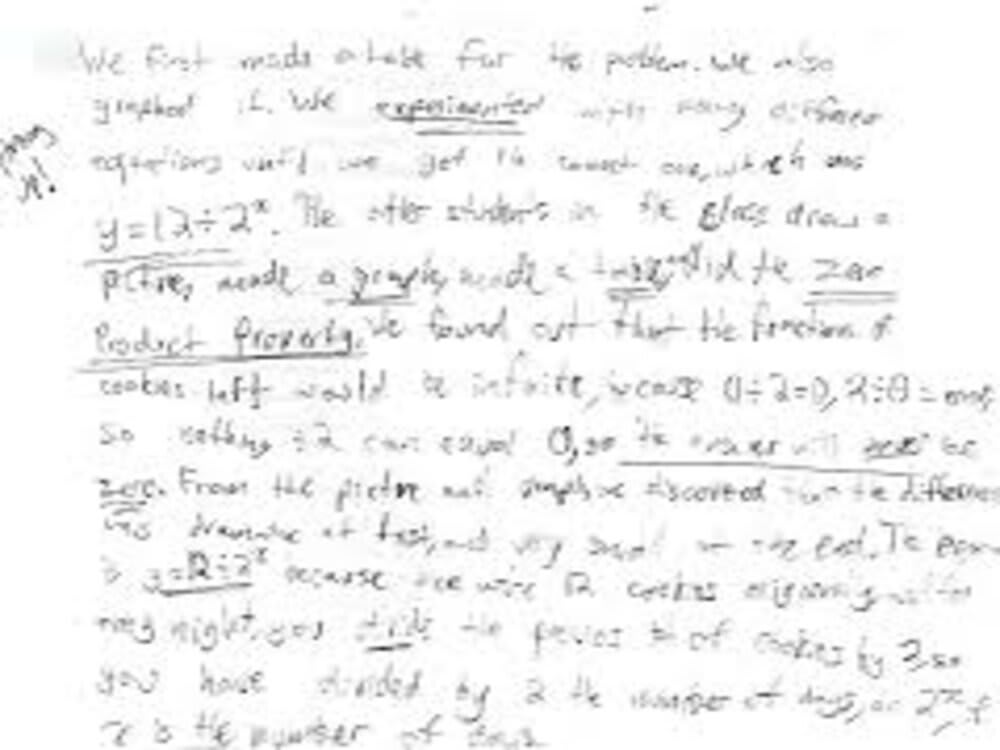 We first made a table for the problem. We also
graphed it. We experimented with many different
equations until we got the correct one, which was
y = 12 ÷ 2^x. The other students in the class drew a
picture, made a graph, made a and did the zero
Product Property. We found out that the fraction of
cookies left would be infinite, because 0÷2=0, 2÷0 =
so nothing ÷2 can equal 0, so the answer will be
zero. From the picture and graph we discovered that the difference
was at first, and very small at the end. The
is y=12÷2^x because there were 12 cookies originally
night, you divide the # of cookies by 2 so
you have divided by 2 the number of days, or 2^x, if
x is the number of days